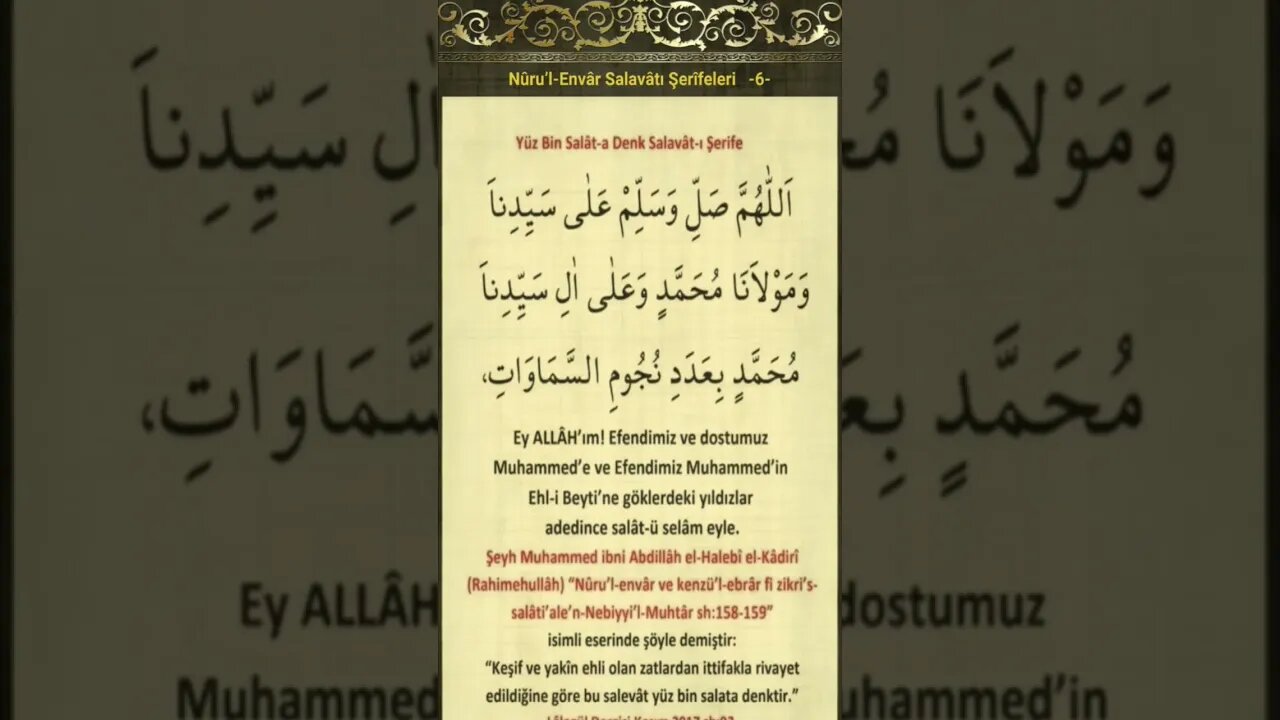 Nûru'l-Envâr Salavâtı Şerîfeleri -6-
Yüz Bin Salât-a Denk Salavât-ı Şerife
اَللّٰهُمَّ صَلِّ وَسَلِّمْ عَلٰى سَيِّدِناَ
وَمَوْلاَنَا مُحَمَّدٍ وَعَلٰى اٰلِ سَيِّدِناَ
مُحَمَّدٍ بِعَدَدِ نُجُومِ السَّمَاوَاتِ،
Ey ALLÂH'ım! Efendimiz ve dostumuz
Muhammed'e ve Efendimiz Muhammed'in
Ehl-i Beyti'ne göklerdeki yıldızlar
adedince salât-ü selâm eyle.
Şeyh Muhammed ibni Abdillâh el-Halebî el-Kâdirî
(Rahimehullâh) “Nûru'l-envâr ve kenzü'l-ebrâr fî zikri's-
salâti'ale'n-Nebiyyi'l-Muhtâr sh:158-159”
isimli eserinde şöyle demiştir:
“Keşif ve yakîn ehli olan zatlardan ittifakla rivayet
edildiğine göre bu salevât yüz bin salata denktir.”